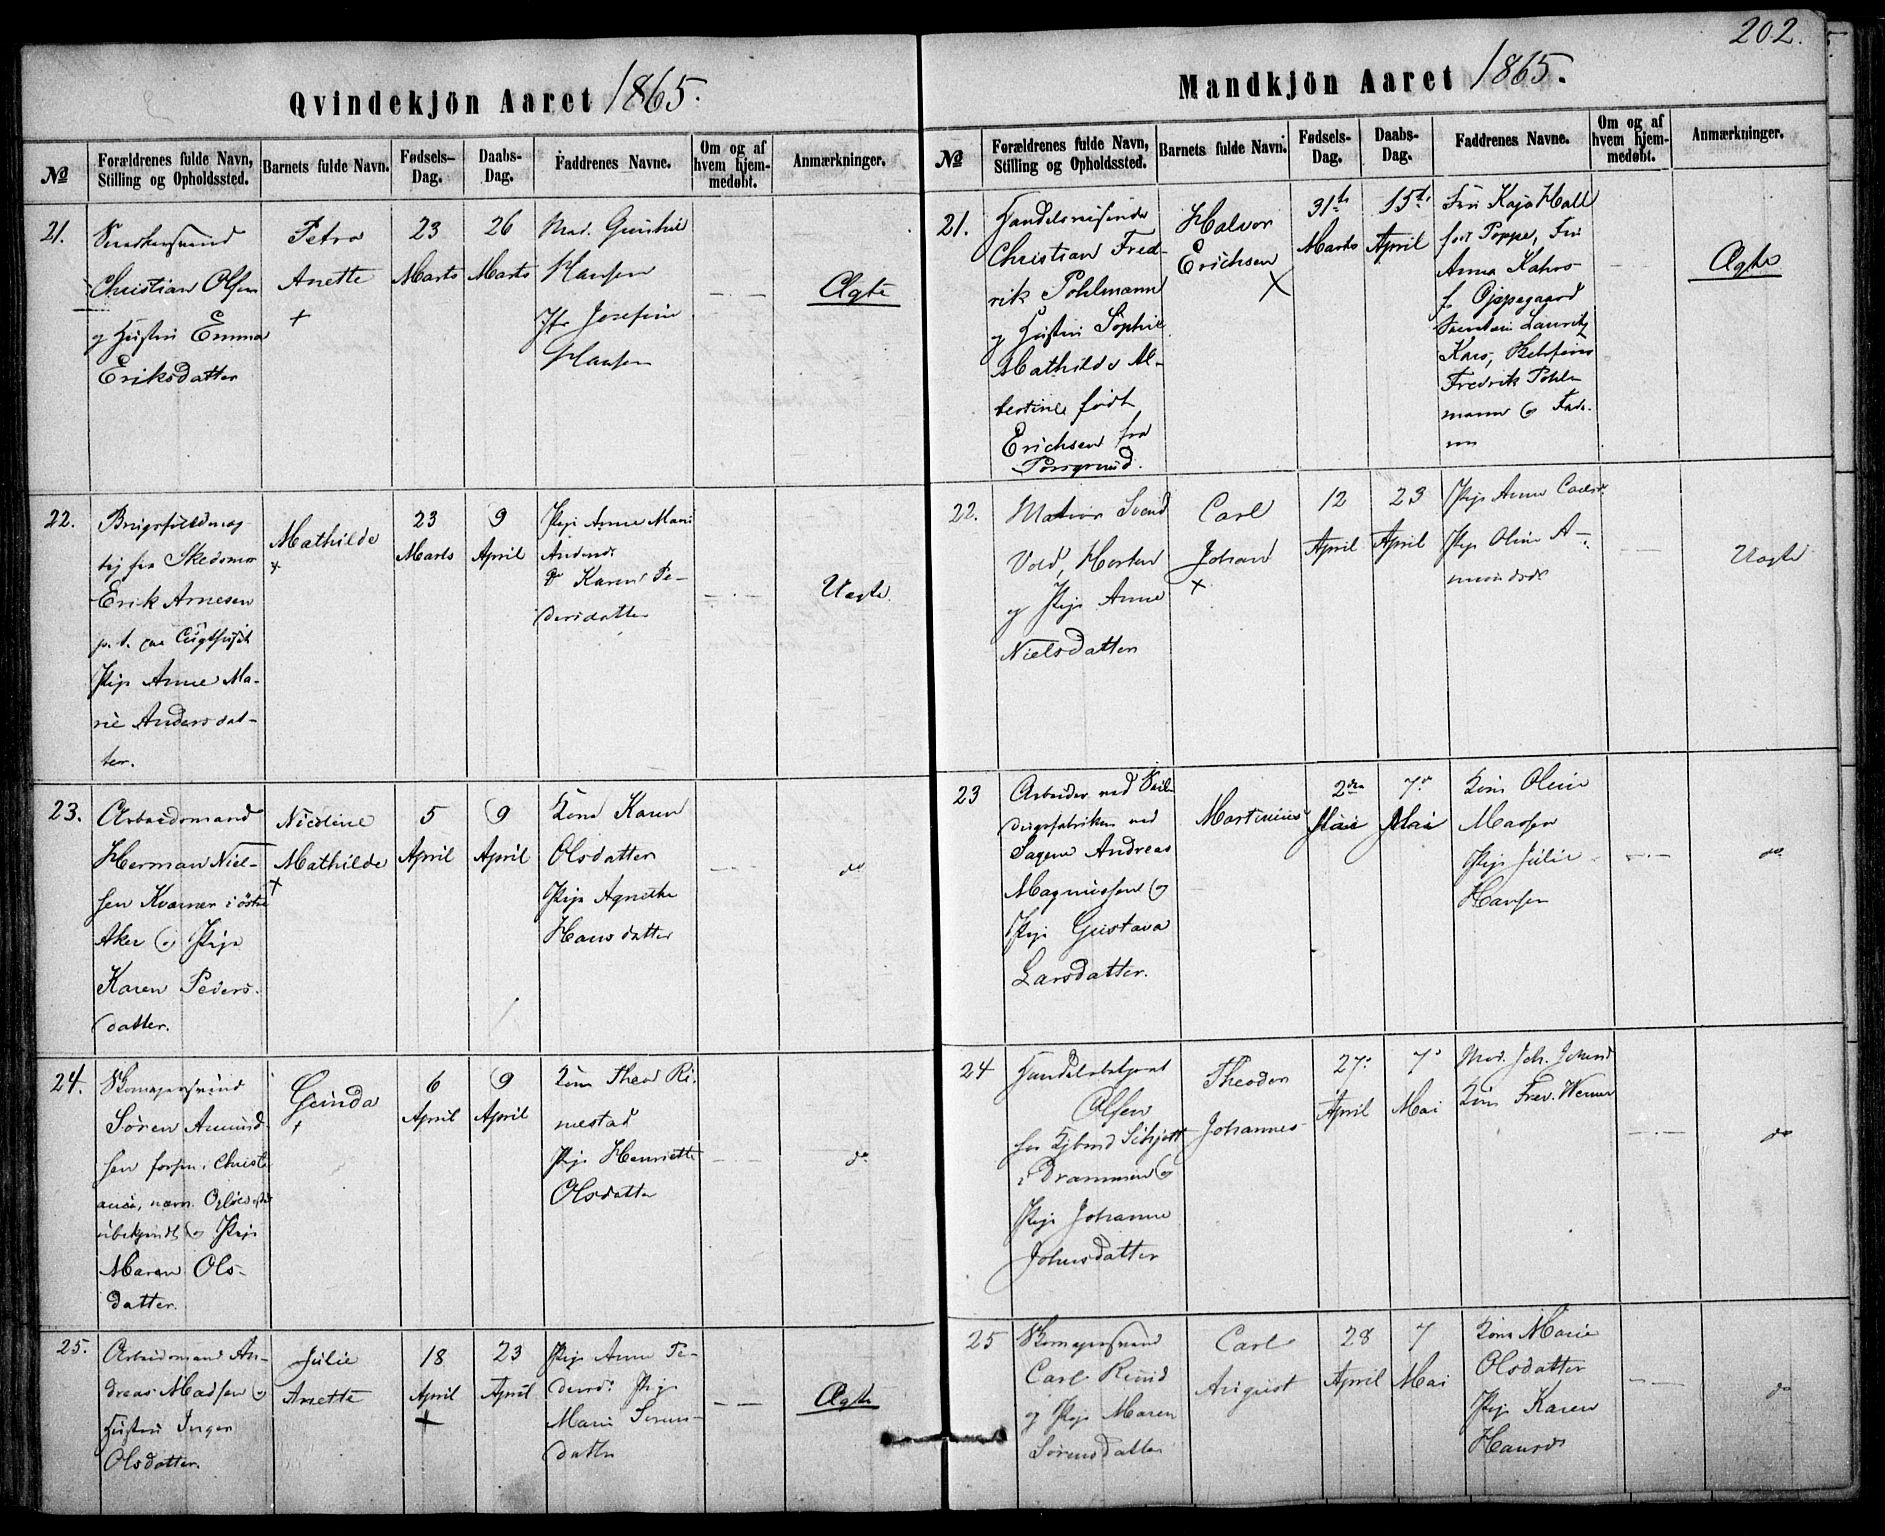 202.
Qvindekjön Aaret 1865.
№
Forældrenes fulde Navn,
Stilling og Opholdssted.
Barnets fulde Navn.
Fødsels-
Dag.
Daabs-
Dag.
Faddrenes Navne.
Om og af
hvem hjem-
medøbt.
Anmærkninger.
21.
Christian Olsen
og Hustru Emma
Eriksdatter
Petra
Anette
+
23
Marts
26
Marts
Mad. Gunhild
Hansen
Jfr Josefine
Hansen
— —
Ægte
22.
Erik Arnesen
p. t. paa Tugthuset
Pige Anne Ma-
rie Andersdat-
ter.
Mathilde
+
23
Marts
9
April
Pige Anne Marie
Anders
Do Karen Pe-
dersdatter
— . —
Uægte.
23.
Arbeidsmand
Herman Niel-
sen Kværner i østre
Aker og Pige
Karen Peders-
datter.
Nicoline
Mathilde
+
5
April
9
April
Kone Karen
Olsdatter
Pige Agnethe
Hansdatter
— . —
do
24.
Søren Amund-
sen forhen i Christi-
ania, nærv. Opholdssted
ubekjendt og Pige
Maren Ols-
datter.
Gunda
+
6
April
9
April
Kone Thea Ri-
nestad
Pige Henriette
Olsdatter
— —
do
25.
Arbeidsmand An-
dreas Madsen og
Hustru Inger
Olsdatter.
Julie
Anette
18
April
+
23
April
Pige Anne Pe-
dersd. Pige
Marie Soren-
datter
— —
Ægte
Mandkjön Aaret 1865.
№
Forældrenes fulde Navn,
Stilling og Opholdssted.
Barnets fulde Navn.
Fødsels-
Dag.
Daabs-
Dag.
Faddrenes Navne.
Om og af
hvem hjem-
medøbt.
Anmærkninger.
21.
Handelsreisende
Christian Fred-
rik Pohlmann
og Hustru Sophie
Mathilde Al-
bertine født
Erichsen fra
Porsgrund.
Halvor
Erichsen
+
31te
Marts
15de
April
Fru Kaja Hall
født Poppe, Fru
Anna
f. Oppegaard
Lauritz
Fredrik Pohl-
mann og Fade-
ren
Ægte
22.
Matros Svend
Vold, Horten
og Pige Anne
Nielsdatter
Carl
Johan
+
12
April
23
April
Pige Anne
Pige Oline A-
mundsd.
— . —
Uægte
23
Arbeider ved Seil-
dugsfabriken ved
Sagene Andreas
Magnussen og
Pige Gustava
Larsdatter.
Martinius
2den
Mai
7de
Mai
Kone Oline
Pige Julie
Hansen
— . —
do
24
Handelsbetjent
Olsen
hos Kjbmd Schjøtt
i Drammen og
Pige Johanne
Johnsdatter
Theodor
Johannes
27de
April
7de
Mai
Mad. Joh.
Kone Fred. Werner
— . —
do
25
Carl Rund
og Pige Maren
Sørensdatter
Carl
August
28
April
7
Mai
Kone Marie
Olsdatter
Pige Karen
Hansd.
— . —
do